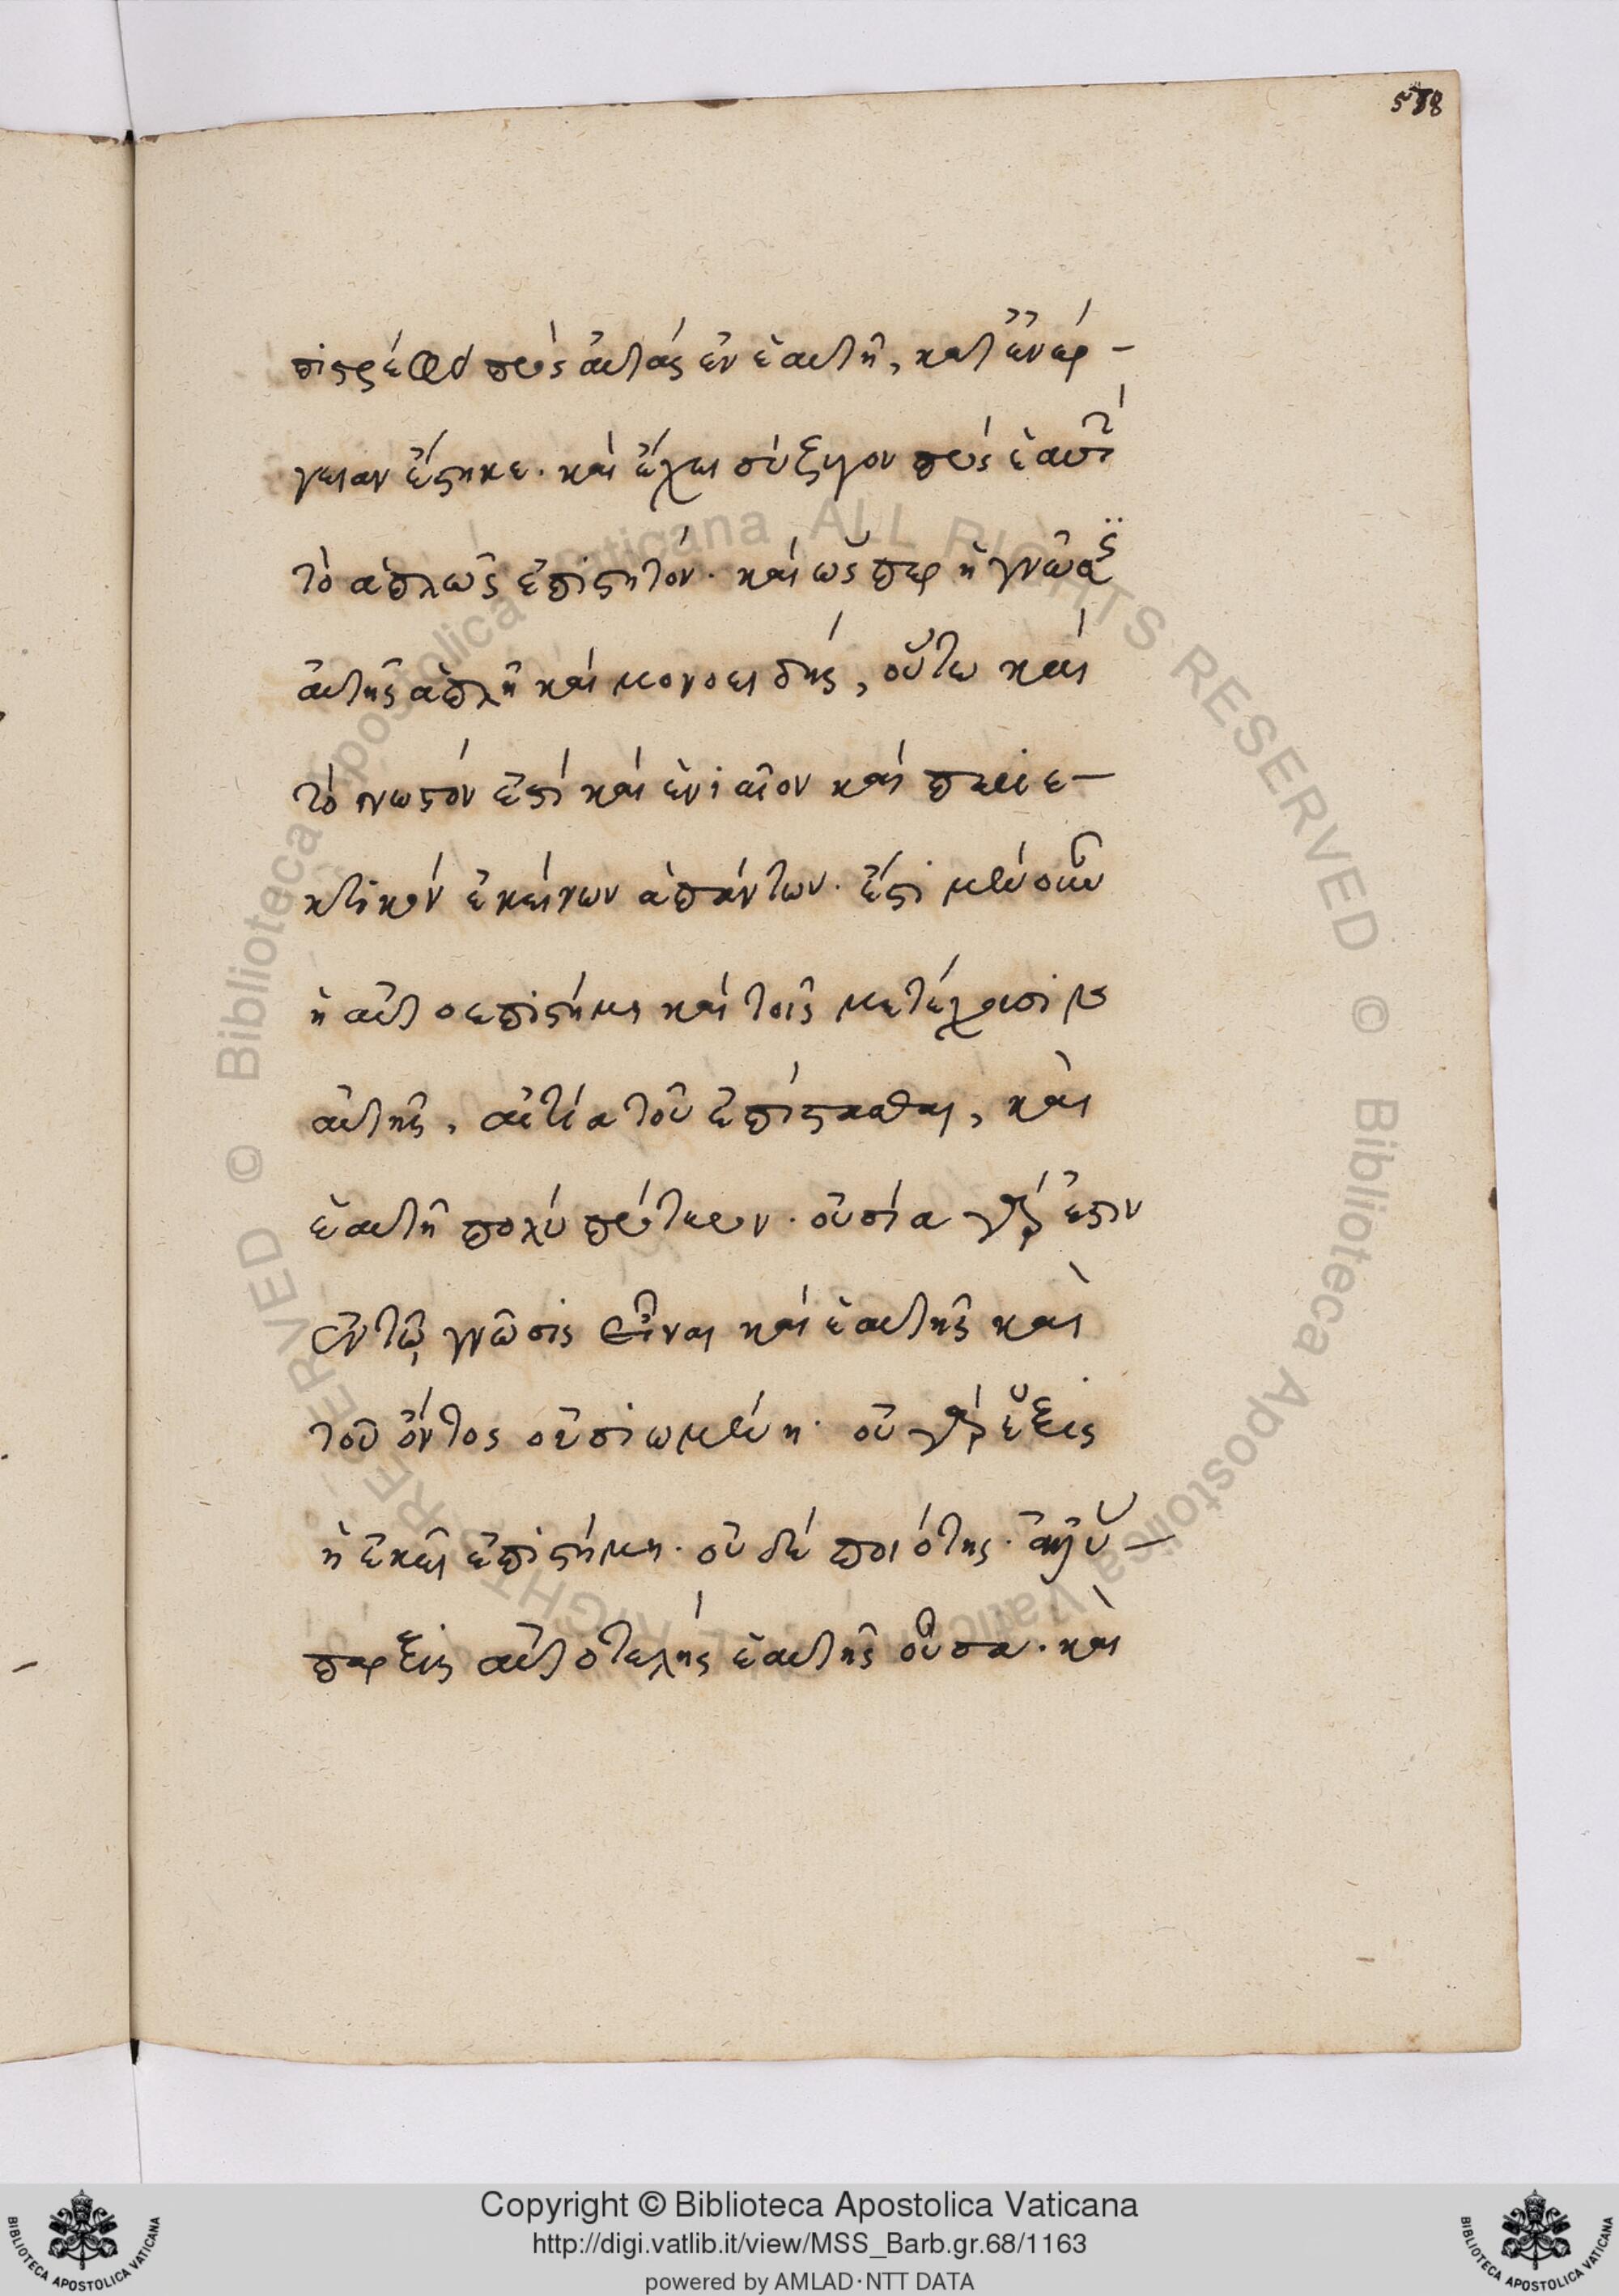 578
πιστρέφει πρὸς αὐτὰς ἐν ἑαυτῇ, κατ' ἐνέρ-
γειαν ἕστηκε. καὶ ἔχει σύζυγον πρὸς ἑαυτὴν
τὸ ἁπλῶς ἐπιστητόν. καὶ ὥσπερ ἡ γνῶσις
αὐτῆς ἁπλῆ καὶ μονοειδής, οὕτω καὶ
τὸ γνωστόν ἐστι καὶ ἑνιαῖον καὶ περιε-
κτικὸν ἐκείνων ἁπάντων. ἔστι μὲν οὖν
ἡ αὐτοεπιστήμη καὶ τοῖς μετέχουσι
αὐτῆς, αἰτία τοῦ ἐπίστασθαι, καὶ
ἑαυτῇ πολὺ πρότερον. οὐσία γάρ ἐστιν
ἐν τῷ γνῶσις εἶναι καὶ ἑαυτῆς καὶ
τοῦ ὄντος οὐσιωμένη. οὐ γὰρ ἕξις
ἡ ἐκεῖ ἐπιστήμη. οὐδὲ ποιότης. ἀλλ' ὕ-
παρξις αὐτοτελὴς ἑαυτῆς οὖσα. καὶ
Copyright © Biblioteca Apostolica Vaticana
http://digi.vatlib.it/view/MSS_Barb.gr.68/1163
powered by AMLAD·NTT DATA
BIBLIOTECA APOSTOLICA VATICANA
BIBLIOTECA APOSTOLICA VATICANA
© Biblioteca Apostolica Vaticana ALL RIGHTS RESERVED
© Biblioteca Apostolica Vaticana ALL RIGHTS RESERVED